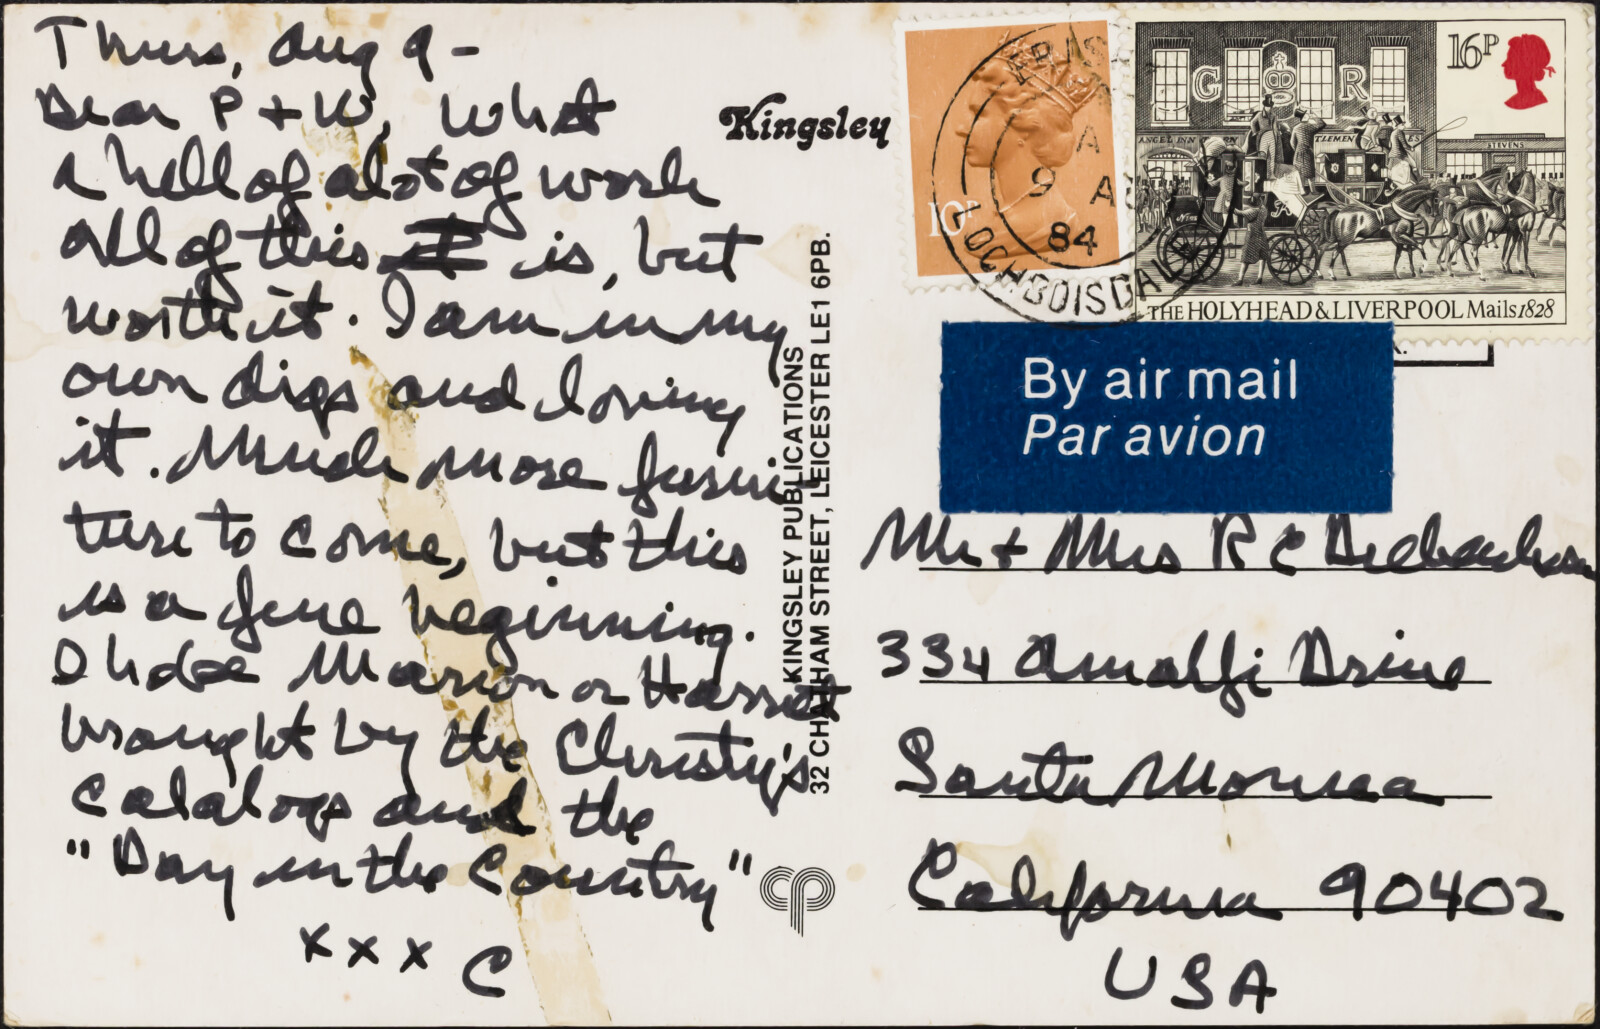 Thurs, Aug 9-
Dear P + W, What
a hell of alot of work
all of this is, but
worth it. I am in my
own digs and loving
it. Much more furni-
ture to come, but this
is a fine beginning.
I hope Marion or Harriet
brought by the Christy's
catalogs and the
"Day in the Country"
x x x C
Kingsley
KINGSLEY PUBLICATIONS
32 CHATHAM STREET, LEICESTER LE1 6PB.
cp
10P
A
9 AU
84
LOCHBOISDALE
16P
G R
ANGEL INN
STEVENS
THE HOLYHEAD & LIVERPOOL Mails 1828
By air mail
Par avion
Mr + Mrs R C
334 Amalfi Drive
Santa Monica
California 90402
USA